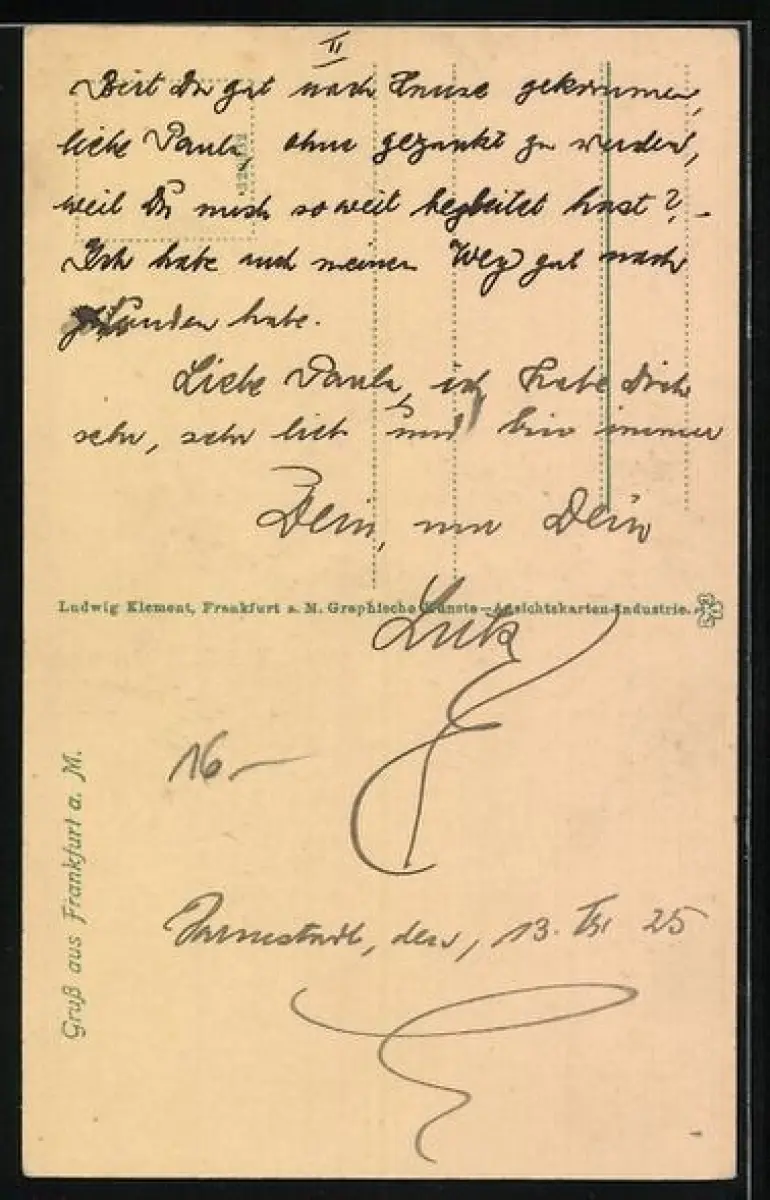 II
Bist Du gut nach Hause gekommen,
liebe Paula, ohne gezankt zu werden,
weil Du mich so weit begleitet hast? -
Ich habe auch meinen Weg gut nach
gefunden habe.
Liebe Paula, ich habe Dich
sehr, sehr lieb und bin immer
Dein, nur Dein
Ludwig Klement, Frankfurt a. M. Graphische Künste-Ansichtskarten-Industrie.
Lutz
16,-
Gruß aus Frankfurt a. M.
Darmstadt, den, 13. 25